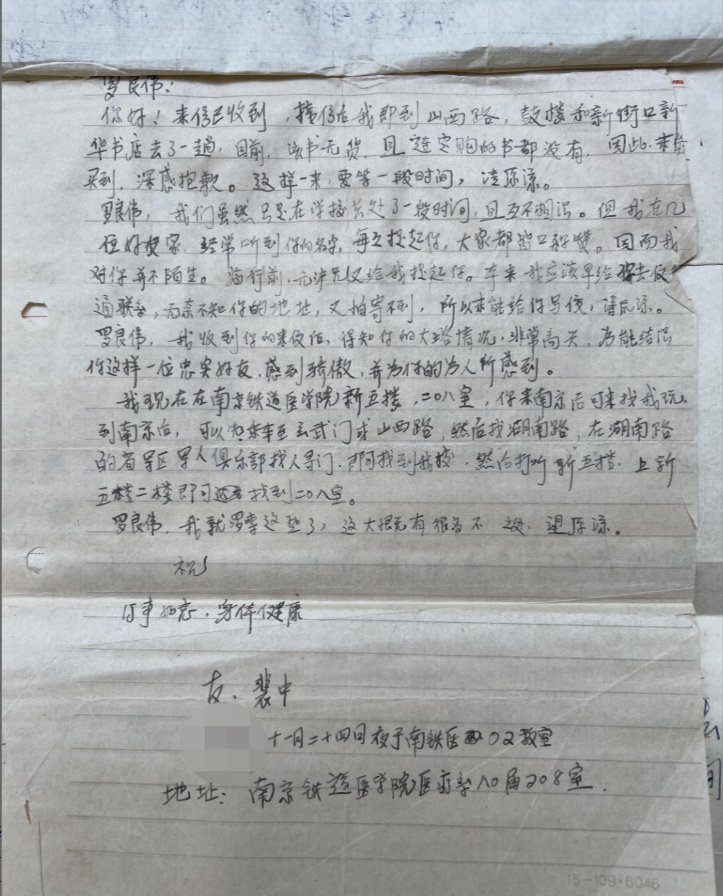 罗良伟:
你好!来信已收到,接信后我即到山西路,鼓楼和新街口新
华书店去了一趟,目前,该书无货,且连定购的书都没有,因此未能
买到,深感抱歉。这样一来,要等一段时间,请原谅。
罗良伟,我们虽然只是在学校共处了一段时间,且互不相识。但我在几
位好友家,经常听到你的名字,每之提起你,大家都皆口称赞。因而我
对你并不陌生。临行前,又给我提起你。本来我应该早给你去
通联络,无奈不知你的地址,又怕寄不到,所以未能给你写信,望原谅。
罗良伟,我收到你的来信后,得知你的大路情况,非常高兴,为能结识
你这样一位忠实好友,感到骄傲,并为你的为人所感到。
我现在在南京铁道医学院新五楼,二〇八室,你来南京后可来找我玩,
到南京后,可以乘车至玄武门或山西路,然后找湖南路,在湖南路
的省军区军人俱乐部找人寻门,即可找到我校,然后打听新五楼,上新
五楼二楼即可找到二〇八室。
罗良伟,我就罗嗦这些了,这大概有很多不 望原谅。
祝
万事如意,身体健康
友:裴中
十一月二十四日夜于南铁医〇2教室
地址:南京铁道医学院医疗系八〇届208室.
15-109-6046